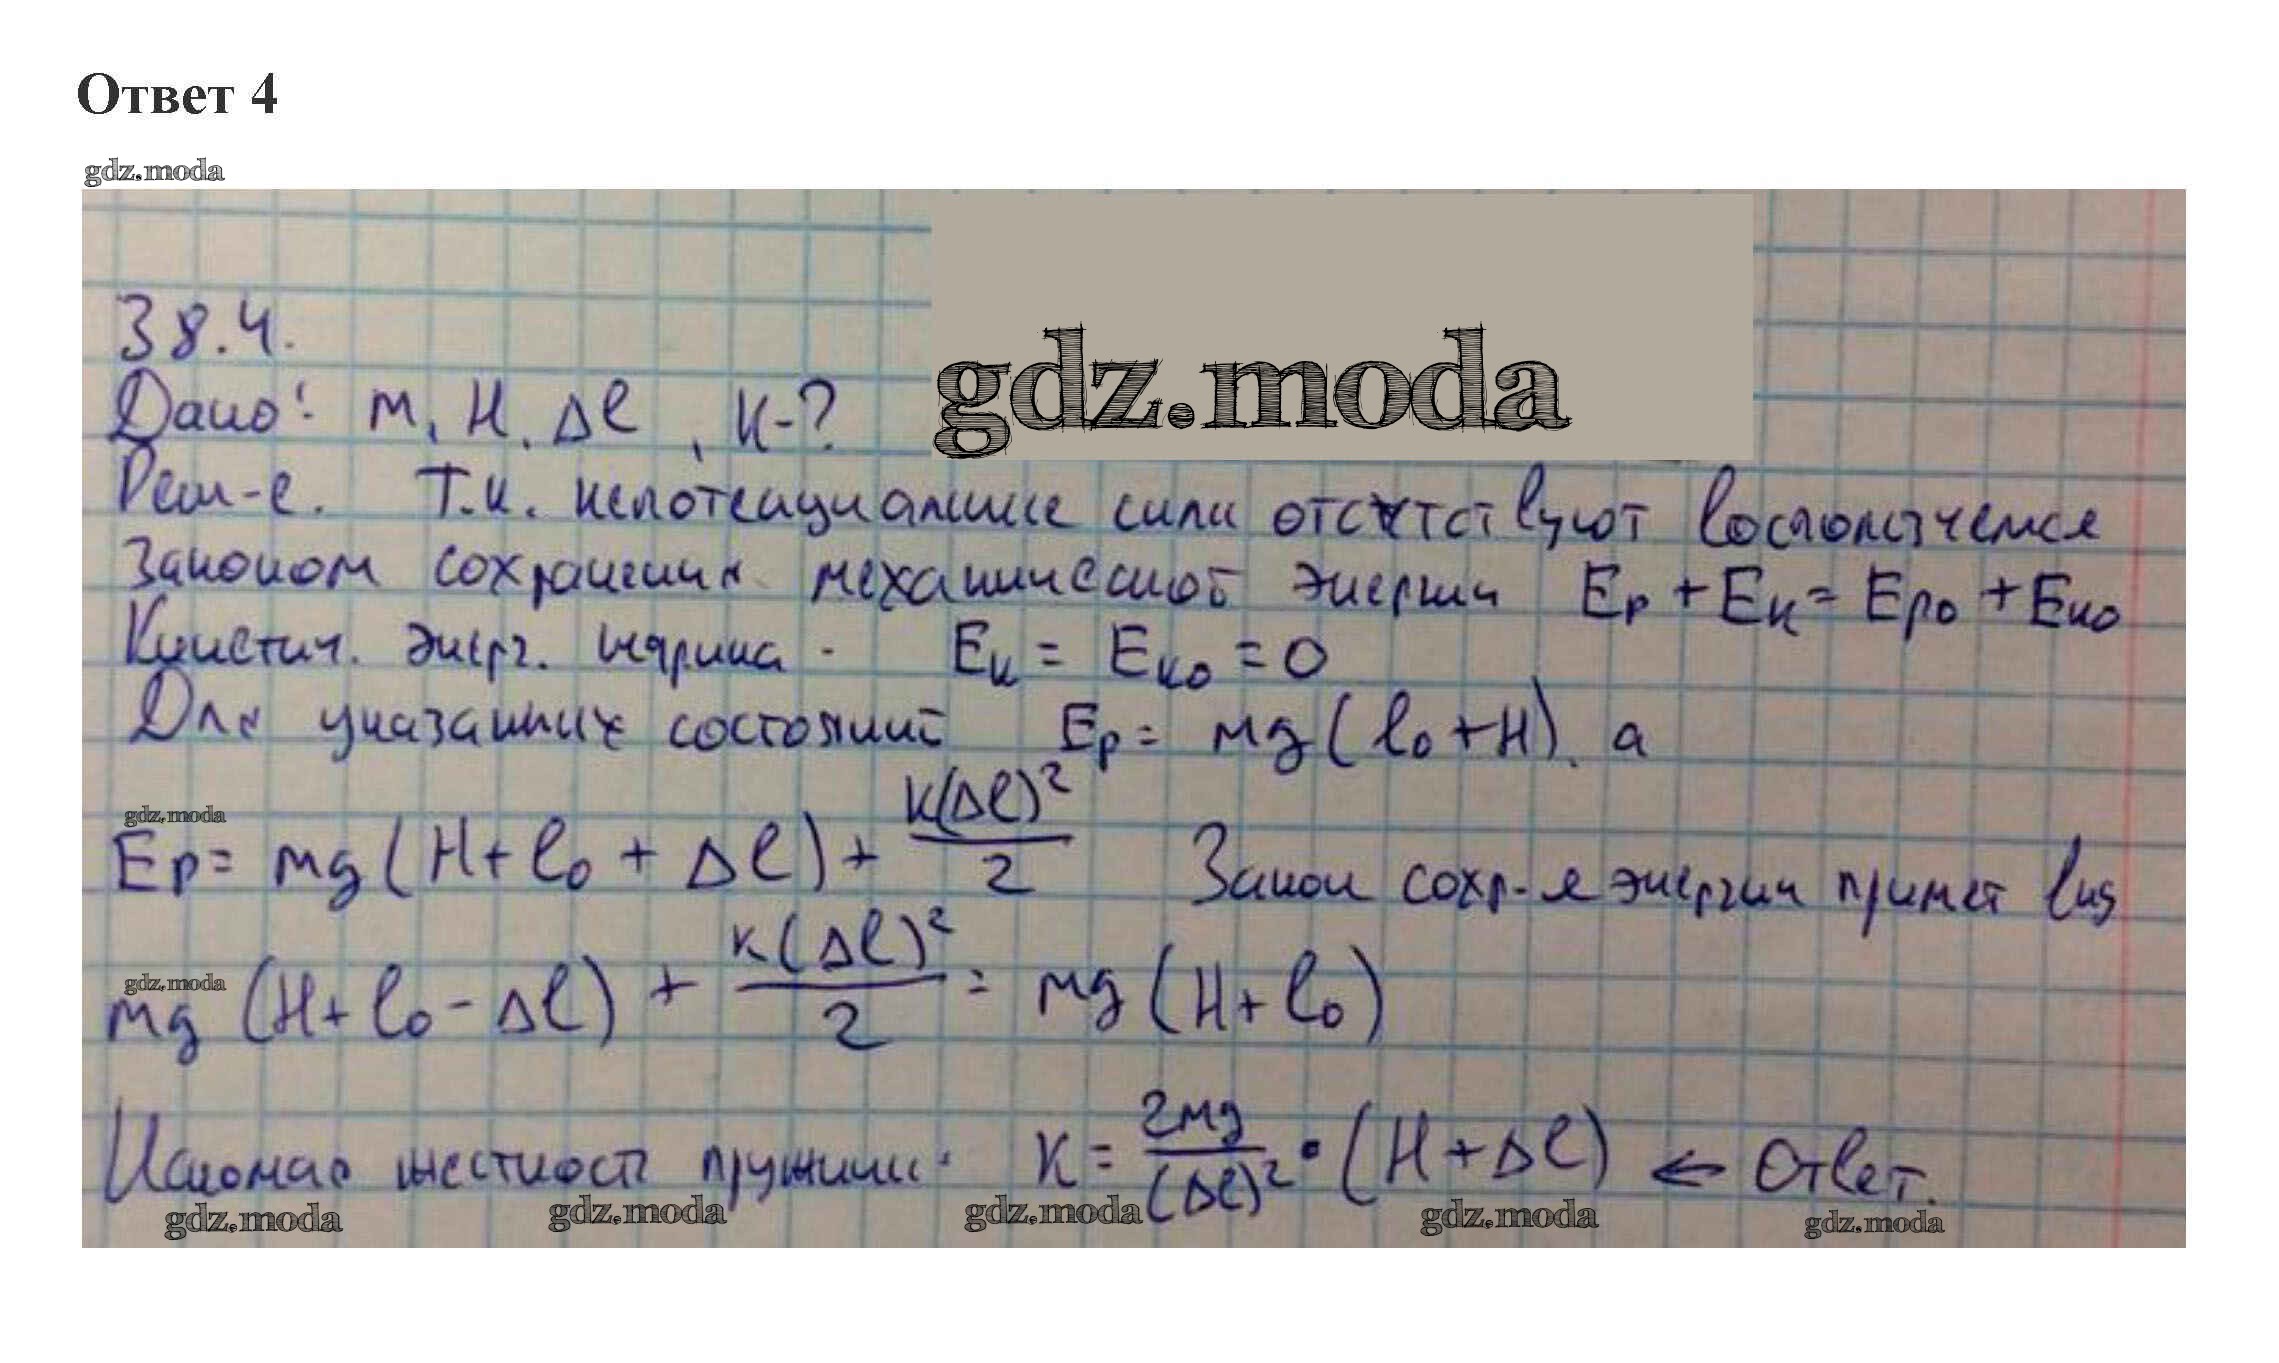 Ответ 4
gdz.moda
38.4.
gdz.moda
Дано: m, H, Δl, K-?
Реш-е. Т.к. непотенциальные силы отсутствуют воспользуемся
Законом сохранения механической энергии Ep + Eк = Epo + Eко
Кинетич. энерг. шарика - Eк = Eко = 0
Для указанных состояний Ep = mg(l₀+H), а
gdz.moda
Ep = mg(H + l₀ + Δl) + K(Δl)²/2 Закон сохр-я энергии примет вид
gdz.moda
mg (H + l₀ - Δl) + K(Δl)²/2 = mg (H + l₀)
Искомая жесткость пружины: K = 2mg/(Δl)² • (H + Δl) ← Ответ.
gdz.moda gdz.moda gdz.moda gdz.moda gdz.moda